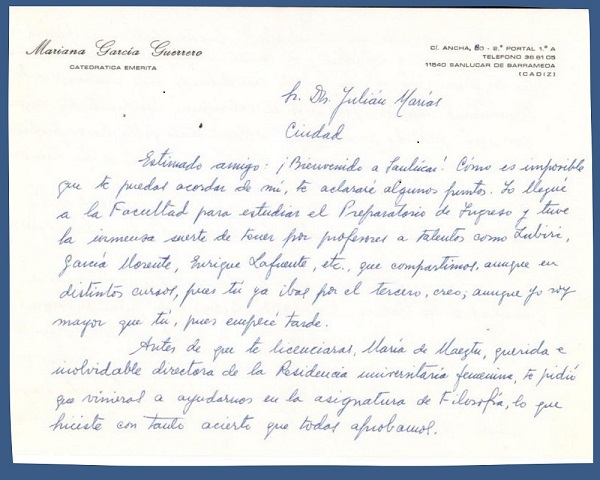 Mariana García Guerrero
CATEDRATICA EMERITA
C/. ANCHA, 80 - 2.° PORTAL 1.° A
TELEFONO 36 61 05
11540 SANLUCAR DE BARRAMEDA
(CADIZ)
Sr. Dn. Julián Marías
Ciudad
Estimado amigo: ¡Bienvenido a Sanlúcar! Cómo es imposible
que te puedas acordar de mí, te aclararé algunos puntos. Yo llegué
a la Facultad para estudiar el Preparatorio de Ingreso y tuve
la inmensa suerte de tener por profesores a talentos como Zubiri,
García Morente, Enrique Lafuente, etc., que compartimos, aunque en
distintos cursos, pues tú ya ibas por el tercero, creo; aunque yo soy
mayor que tú, pues empecé tarde.
Antes de que te licenciaras, María de Maeztu, querida e
inolvidable directora de la Residencia universitaria femenina, te pidió
que vinieras a ayudarnos en la asignatura de Filosofía, lo que
hiciste con tanto acierto que todas aprobamos.